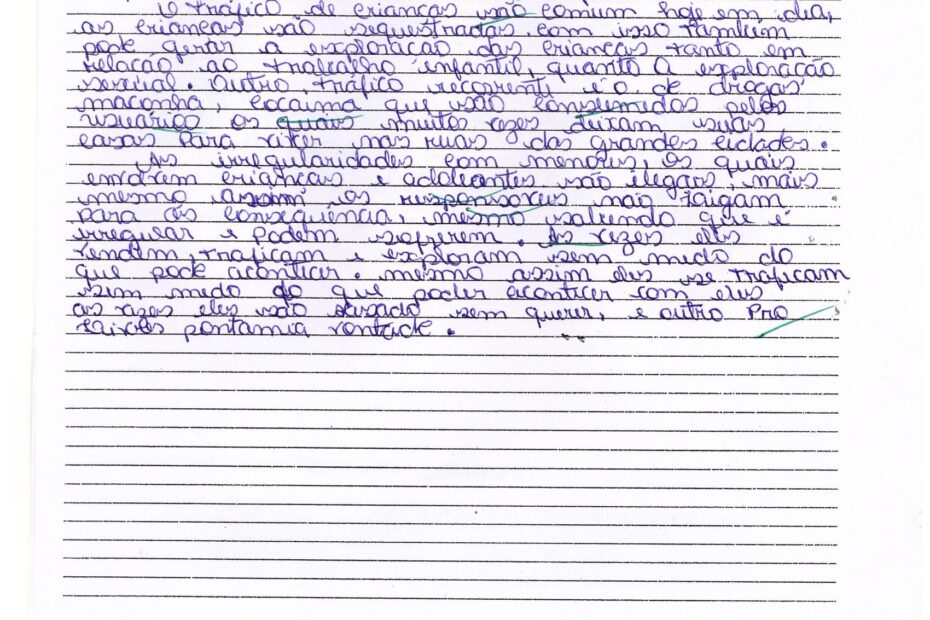 O tráfico de crianças são comum hoje em dia,
as crianças são sequestradas, com isso também
pode gerar a exploração das crianças tanto em
relação ao trabalho infantil, quanto a exploração
sexual. Outro tráfico recorrente é o de drogas
maconha, cocaima que são consumidas pelos
usuários os quais muitos vezes deixam suas
casas para viver nas ruas das grandes cidades.
As irregularidades com menores, os quais
envolvem crianças e adolecentes são ilegais, mais
mesmo assim os responsaveis não
para as consequência, mesmo sabendo que é
irregular e podem sofrerem. As vezes eles
vendem, traficam e exploram sem medo do
que pode aconticer. mesmo assim eles se traficam
sem medo do que poder aconticer com eles
as vezes eles são sem querer, e outro Pro
vontade.